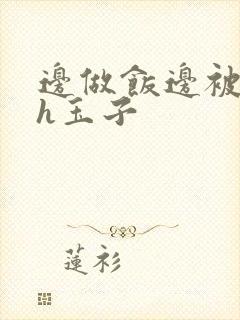 邊做飯邊被
h玉子
蓮衫